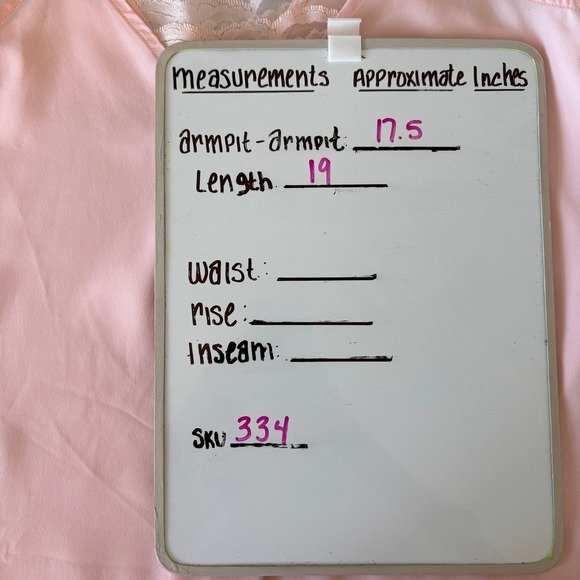 measurements Approximate Inches
armpit-armpit: 17.5
Length: 19
waist:
rise:
Inseam:
SKU 334